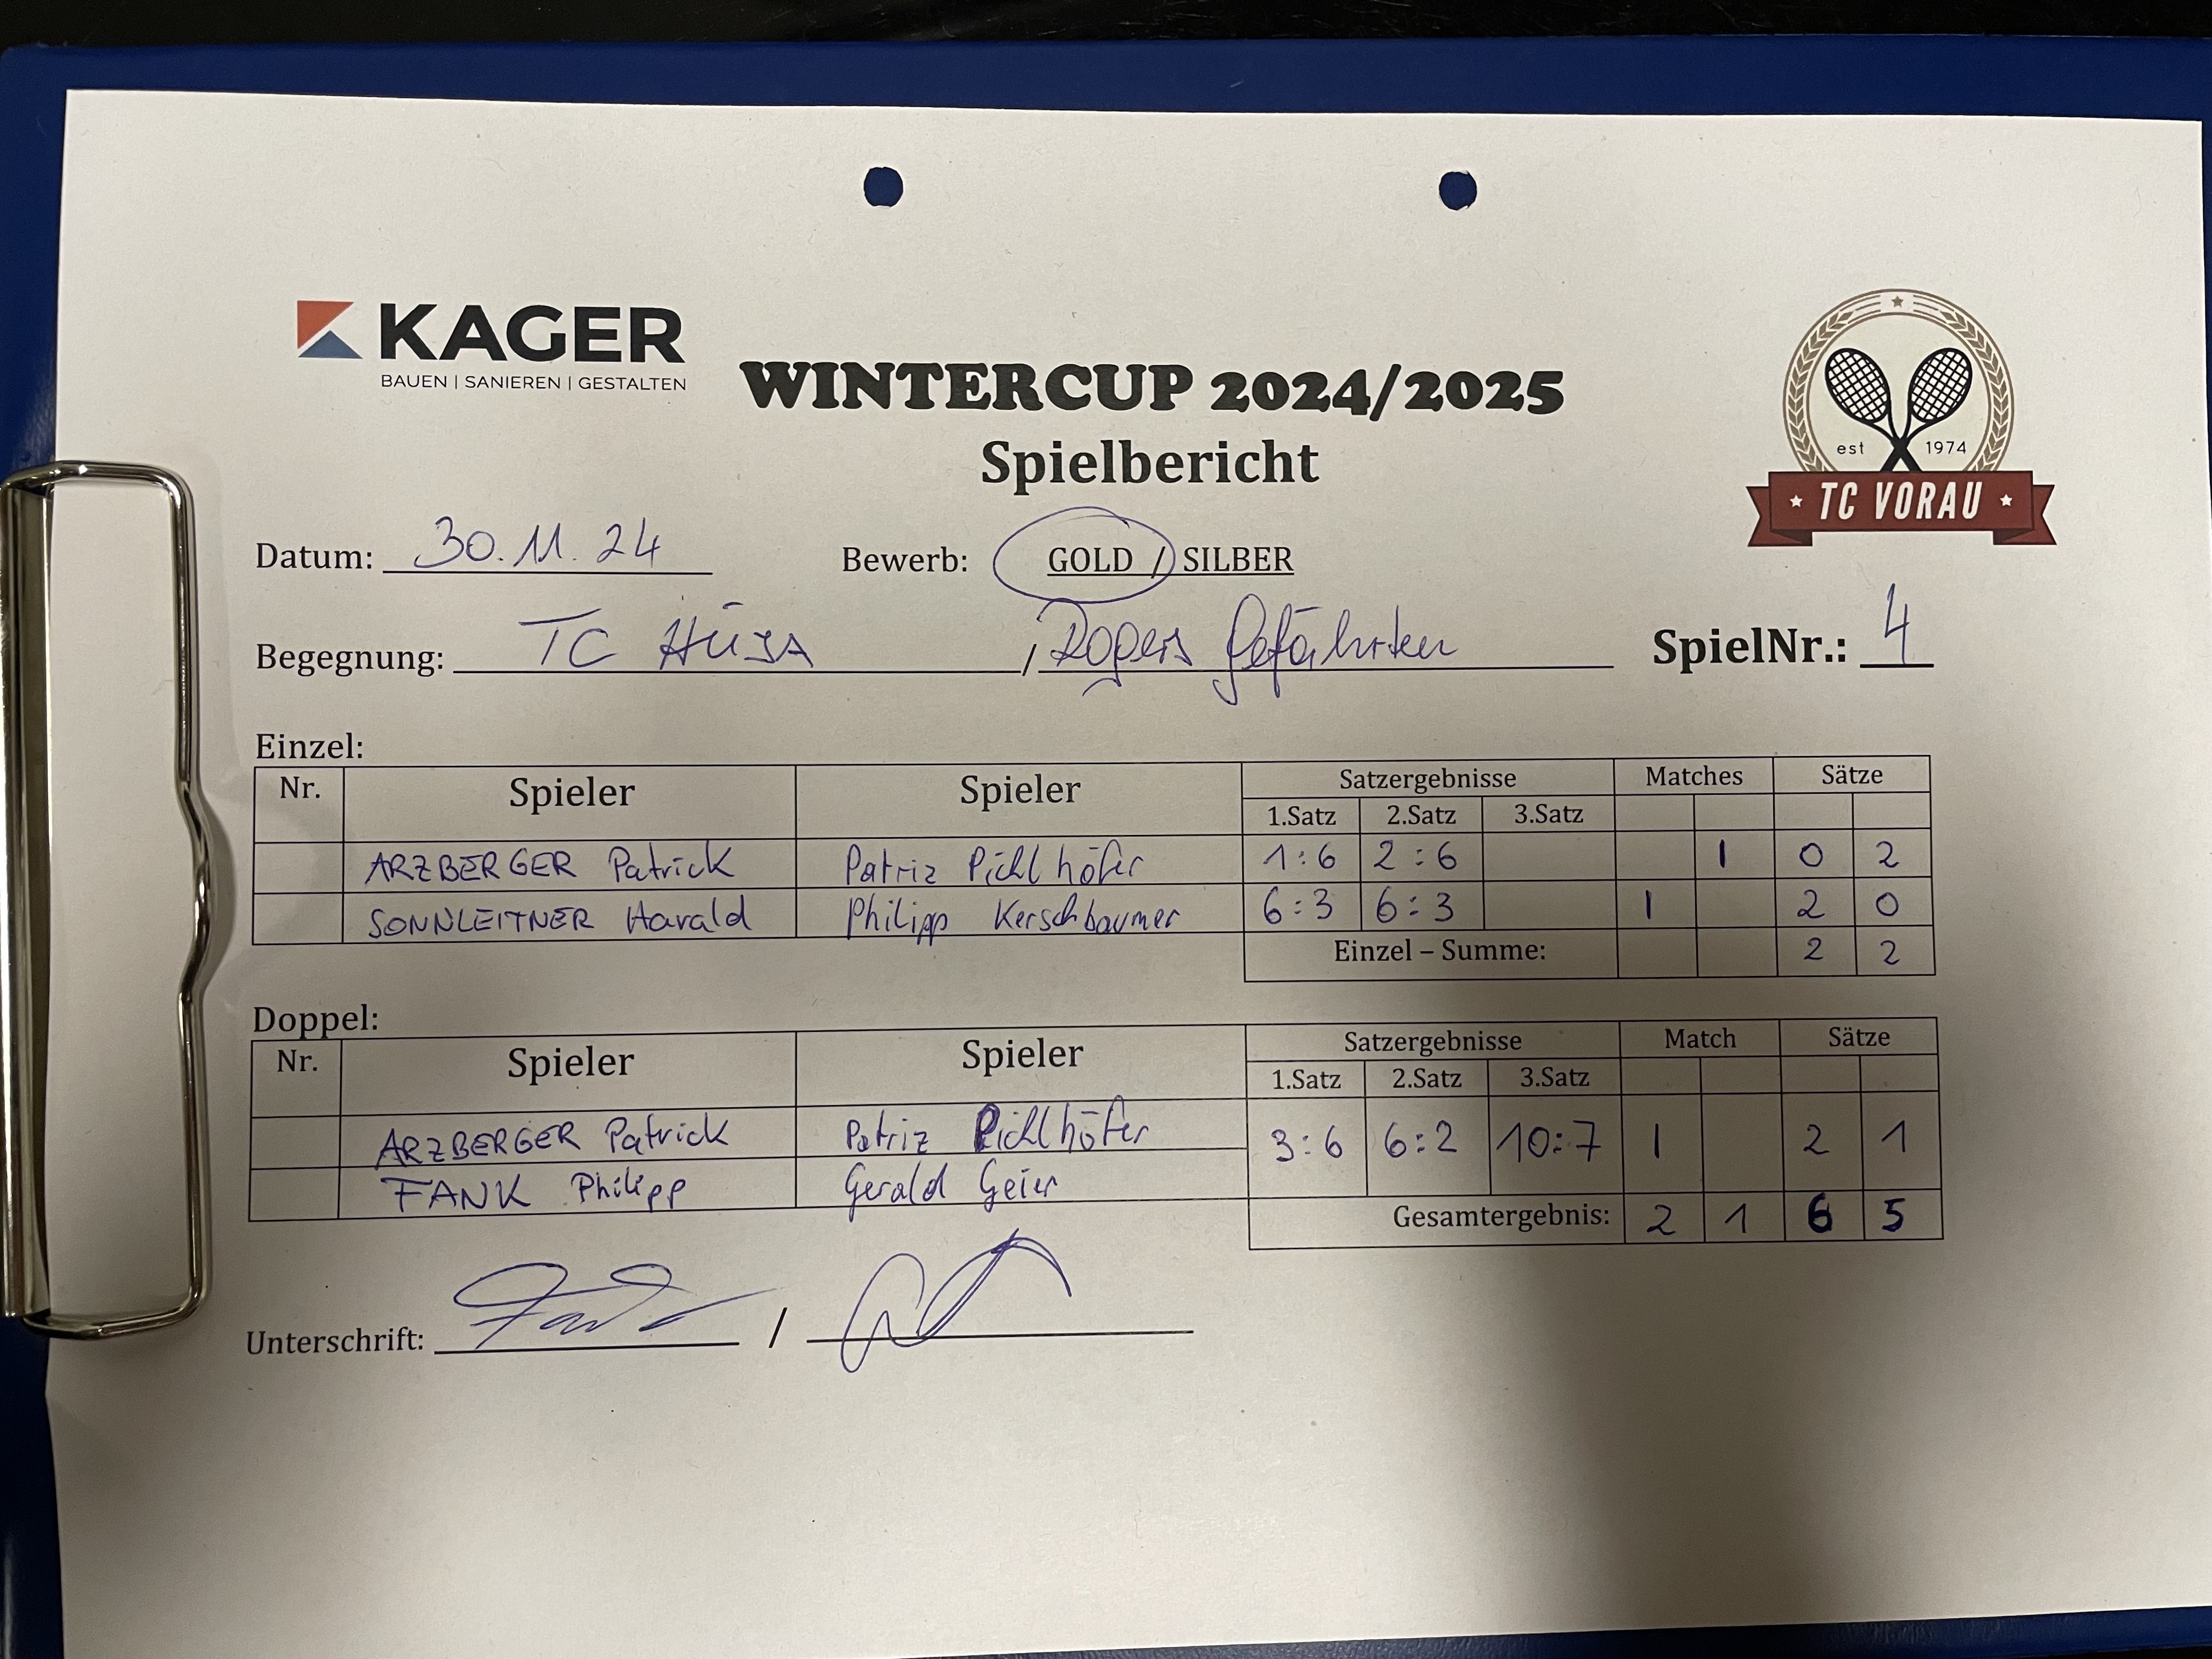 KAGER
BAUEN | SANIEREN | GESTALTEN
WINTERCUP 2024/2025
Spielbericht
est 1974
TC VORAU
Datum: 30.11.24 Bewerb: GOLD / SILBER
Begegnung: TC HÜJA / Rogers Gefährten SpielNr.: 4
Einzel:
Nr. Spieler Spieler Satzergebnisse Matches Sätze
1.Satz 2.Satz 3.Satz
ARZBERGER Patrick Patriz Pichlhöfer 1:6 2:6 1 0 2
SONNLEITNER Harald Philipp Kerschbaumer 6:3 6:3 1 2 0
Einzel – Summe: 2 2
Doppel:
Nr. Spieler Spieler Satzergebnisse Match Sätze
1.Satz 2.Satz 3.Satz
ARZBERGER Patrick Patriz Pichlhöfer 3:6 6:2 10:7 1 2 1
FANK Philipp Gerald Geier
Gesamtergebnis: 2 1 6 5
Unterschrift: /